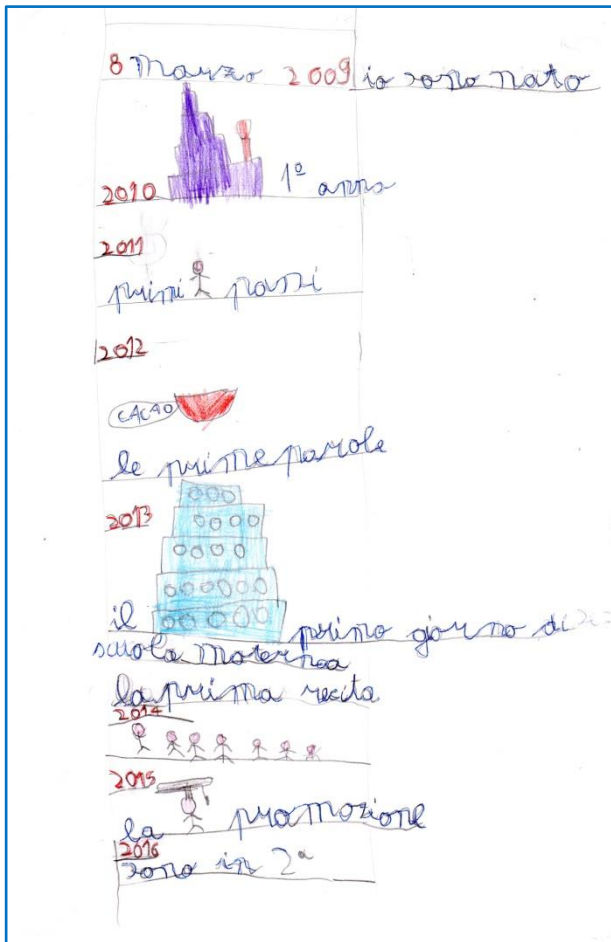 8 Marzo 2009 io sono nato
2010 1º anno
2011
primi passi
2012
CACAO
le prime parole
2013
il primo giorno di
scuola materna
la prima recita
2014
2015
la promozione
2016
sono in 2ª